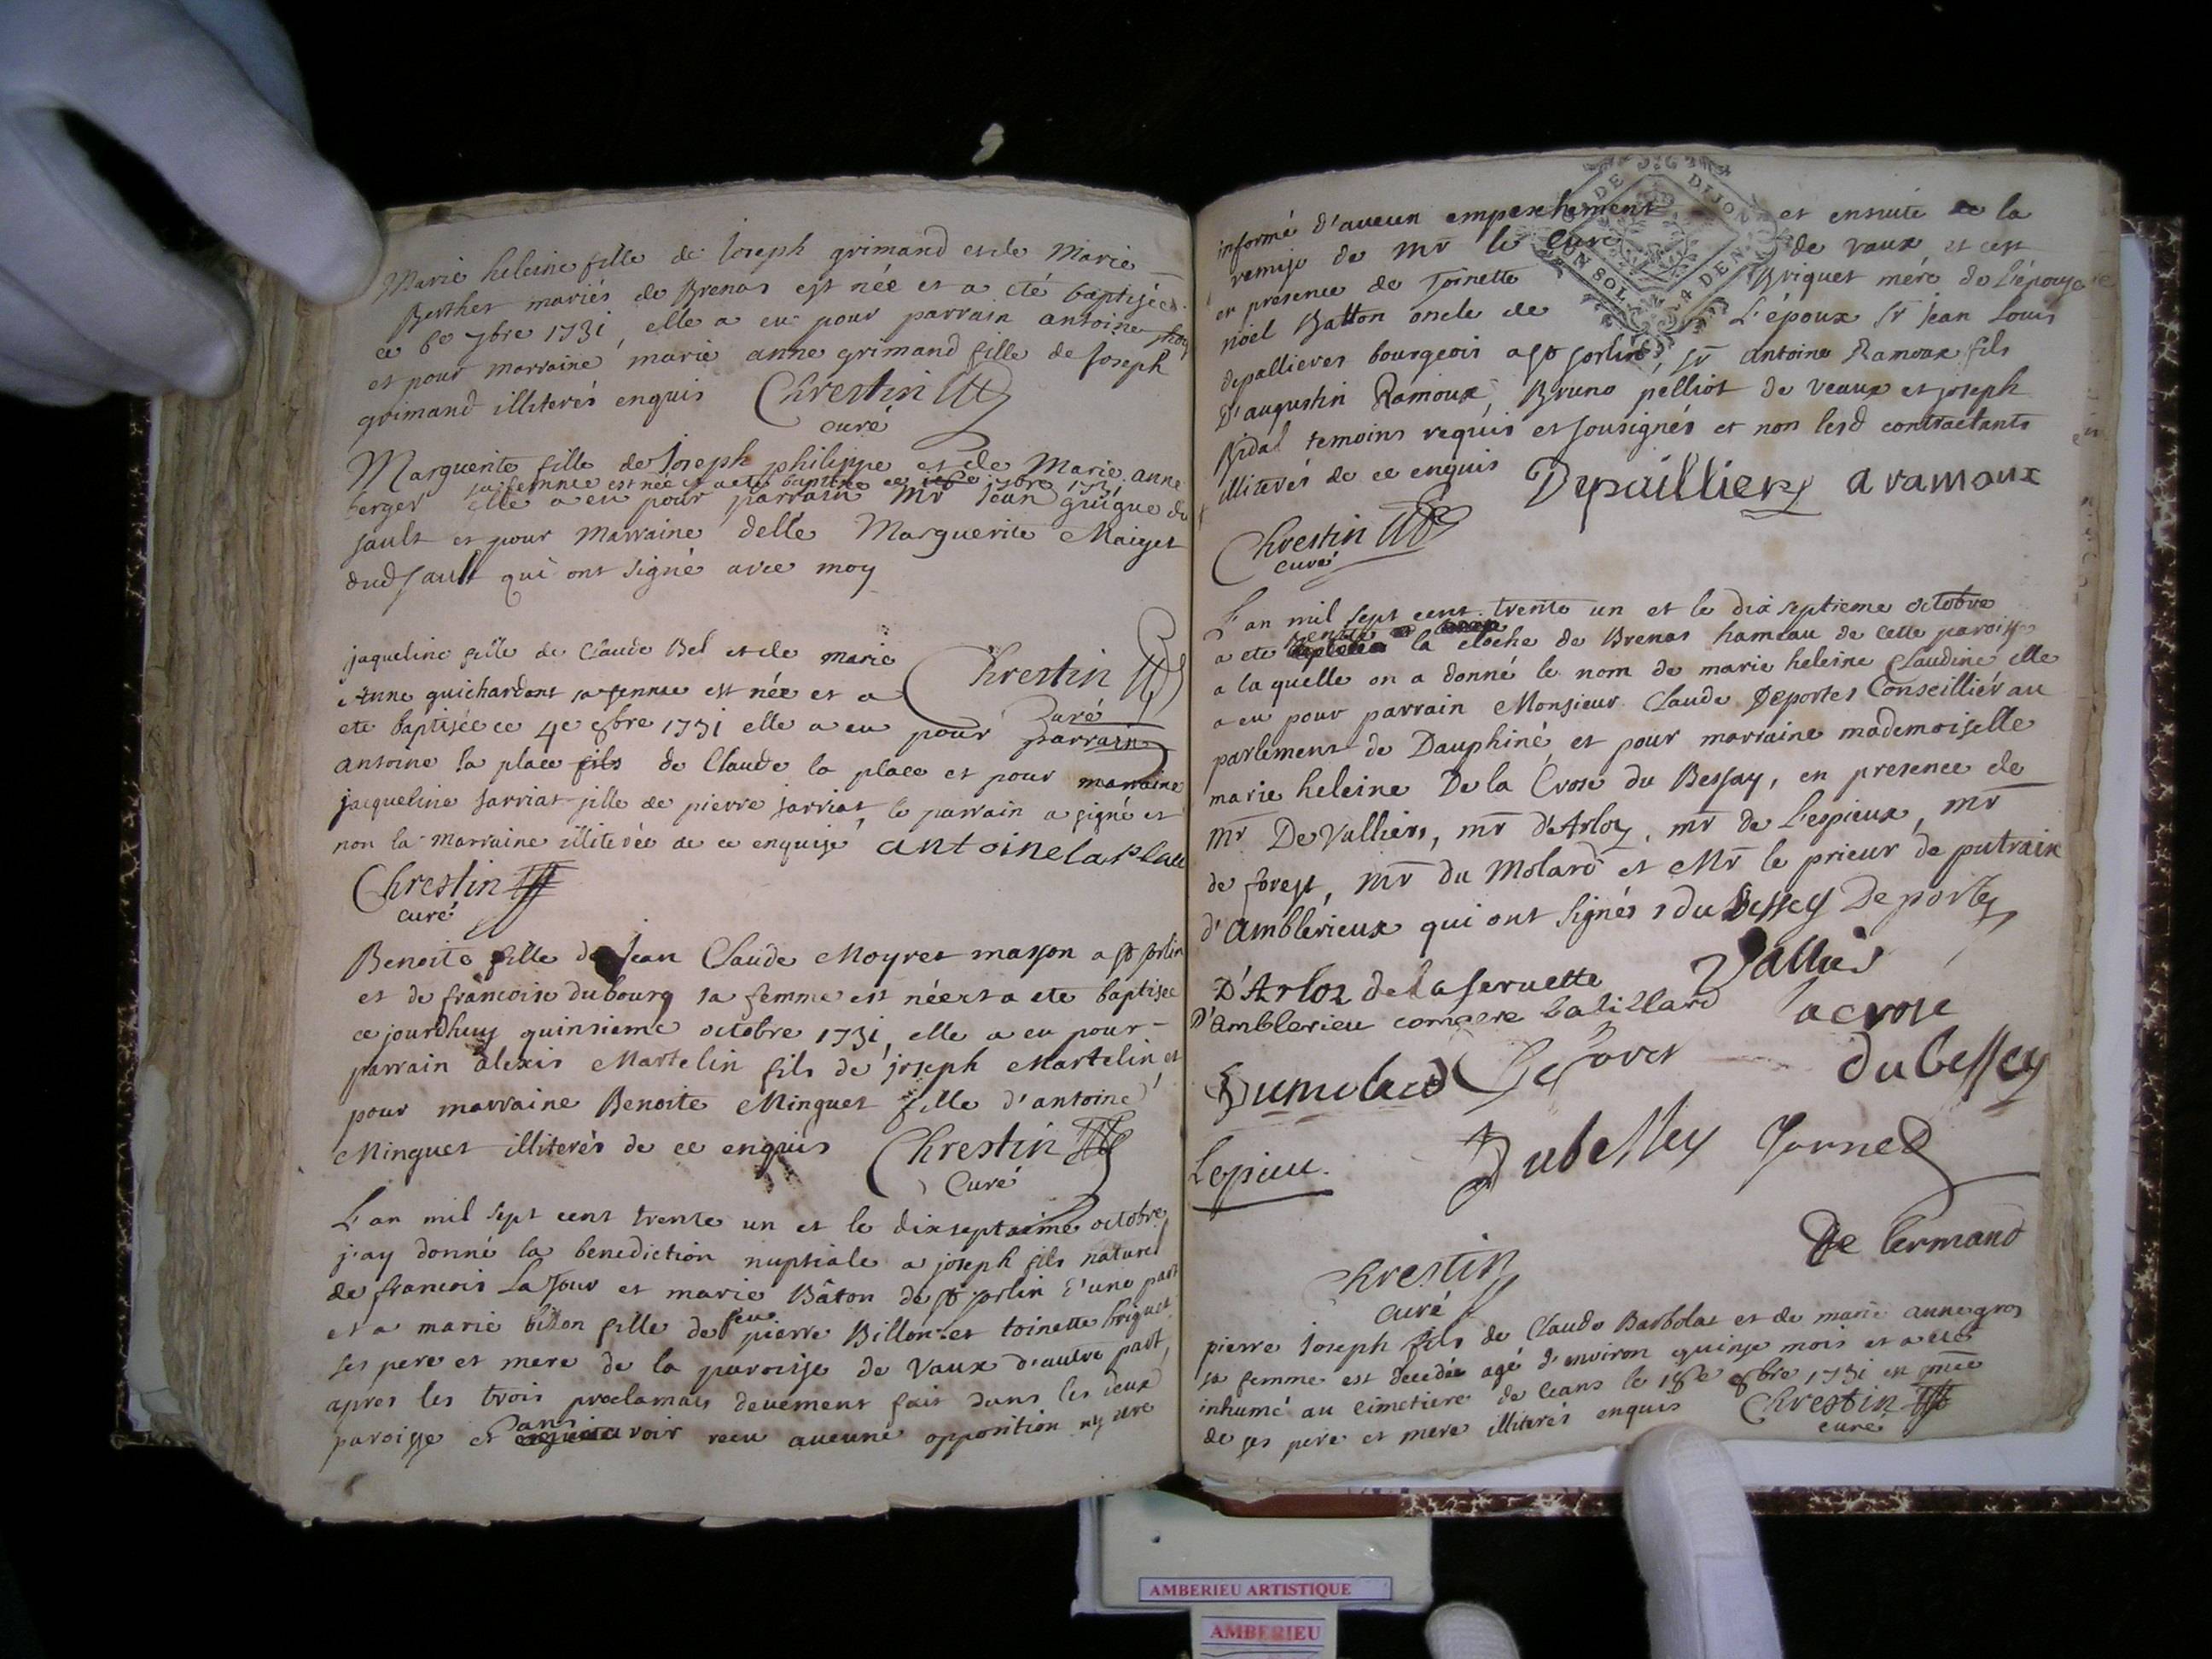 Marie heleine fille de Joseph grimand et de Marie
Berthet mariés de Brenas est née et a eté baptisée
ce 6e 7bre 1731, elle a eu pour parrain antoine
et pour marraine marie anne grimand fille de Joseph
grimand illiterés enquis Chrestin
curé
Marguerite fille de Joseph philippe et de Marie anne
sa femme est née et a eté baptisée ce 7bre 1731
berger elle a eu pour parrain Mr Jean guigue du
sault et pour Marraine delle Marguerite Maiget
dud sault qui ont signé avec moy
Chrestin
Curé
jaqueline fille de Claude Bel et de marie
Anne guichardant sa femme est née et a
ete baptisée ce 4e 8bre 1731 elle a eu pour parrain
antoine la place fils de Claude la place et pour marraine
jacqueline sarriat fille de pierre sarriat, le parrain a signé et
non la marraine illiterée de ce enquise antoine la place
Chrestin
curé
Benoite fille de Jean Claude Moyret masson a st sorlin
et de francoise dubourg sa femme est née et a ete baptisée
ce jourdhuy quinsieme octobre 1731, elle a eu pour
parrain alexis Martelin fils de joseph Martelin et
pour marraine Benoite Minguet fille d'antoine
Minguet illiterés de ce enquis Chrestin
Curé
L'an mil sept cent trente un et le dixseptaime octobre
j'ay donné la benediction nuptiale a joseph fils naturel
de francois La Tour et marie Bâton de st sorlin d'une part
et a marie billon fille de feu pierre Billon et toinette briquet
ses pere et mere de la paroisse de Vaux d'autre part,
apres les trois proclamats deuement fait dans les deux
paroisse et sans avoir recu aucune opposition ny etre
informé d'aucun empeschement et ensuite de la
remise de Mr le Curé de vaux et cest
en presence de Toinette Briquet mére de l'épouse
noël Batton oncle de L'époux sr jean Louis
depallieres bourgeois a st sorlin, sr antoine Ramoux fils
d'augustin Ramoux, Bruno pelliot de veaux et joseph
Bidal temoins requis et sousignés et non lesd contractants
illiterés de ce enquis Depaillieres a ramoux
Chrestin
curé
DE DIJON
CONSOL 4 DEN
L'an mil sept cent trente un et le dix septieme octobre
a ete benite la cloche de Brenas hameau de cette paroisse
a laquelle on a donné le nom de marie heleine Claudine elle
a eu pour parrain Monsieur Claude Deportes Conseillier au
parlement de Dauphiné, et pour marraine mademoiselle
marie heleine De la Crose du Bessay, en presence de
mr De Valliers, mr d'Arloz, mr de Lespieux, mr
de forest, mr du Molard et Mr le prieur de putrain
d'Amblérieux qui ont signés Dubessey Deportes
D'Arloz de la servette Vallies
D'amblerieu compere babillard lacrose
Dumolard De foret dubessey
Lespieu. Dubessey Jornet
De Lermand
Chrestin
curé
pierre Joseph fils de Claude Barbolat et de marie anne gros
sa femme est decedée agé d'environ quinse mois et a eté
inhumé au cimetiere de ceans le 18e 8bre 1731 en pnce
de ses pere et mere illiterés enquis Chrestin
curé
AMBERIEU ARTISTIQUE
AMBERIEU